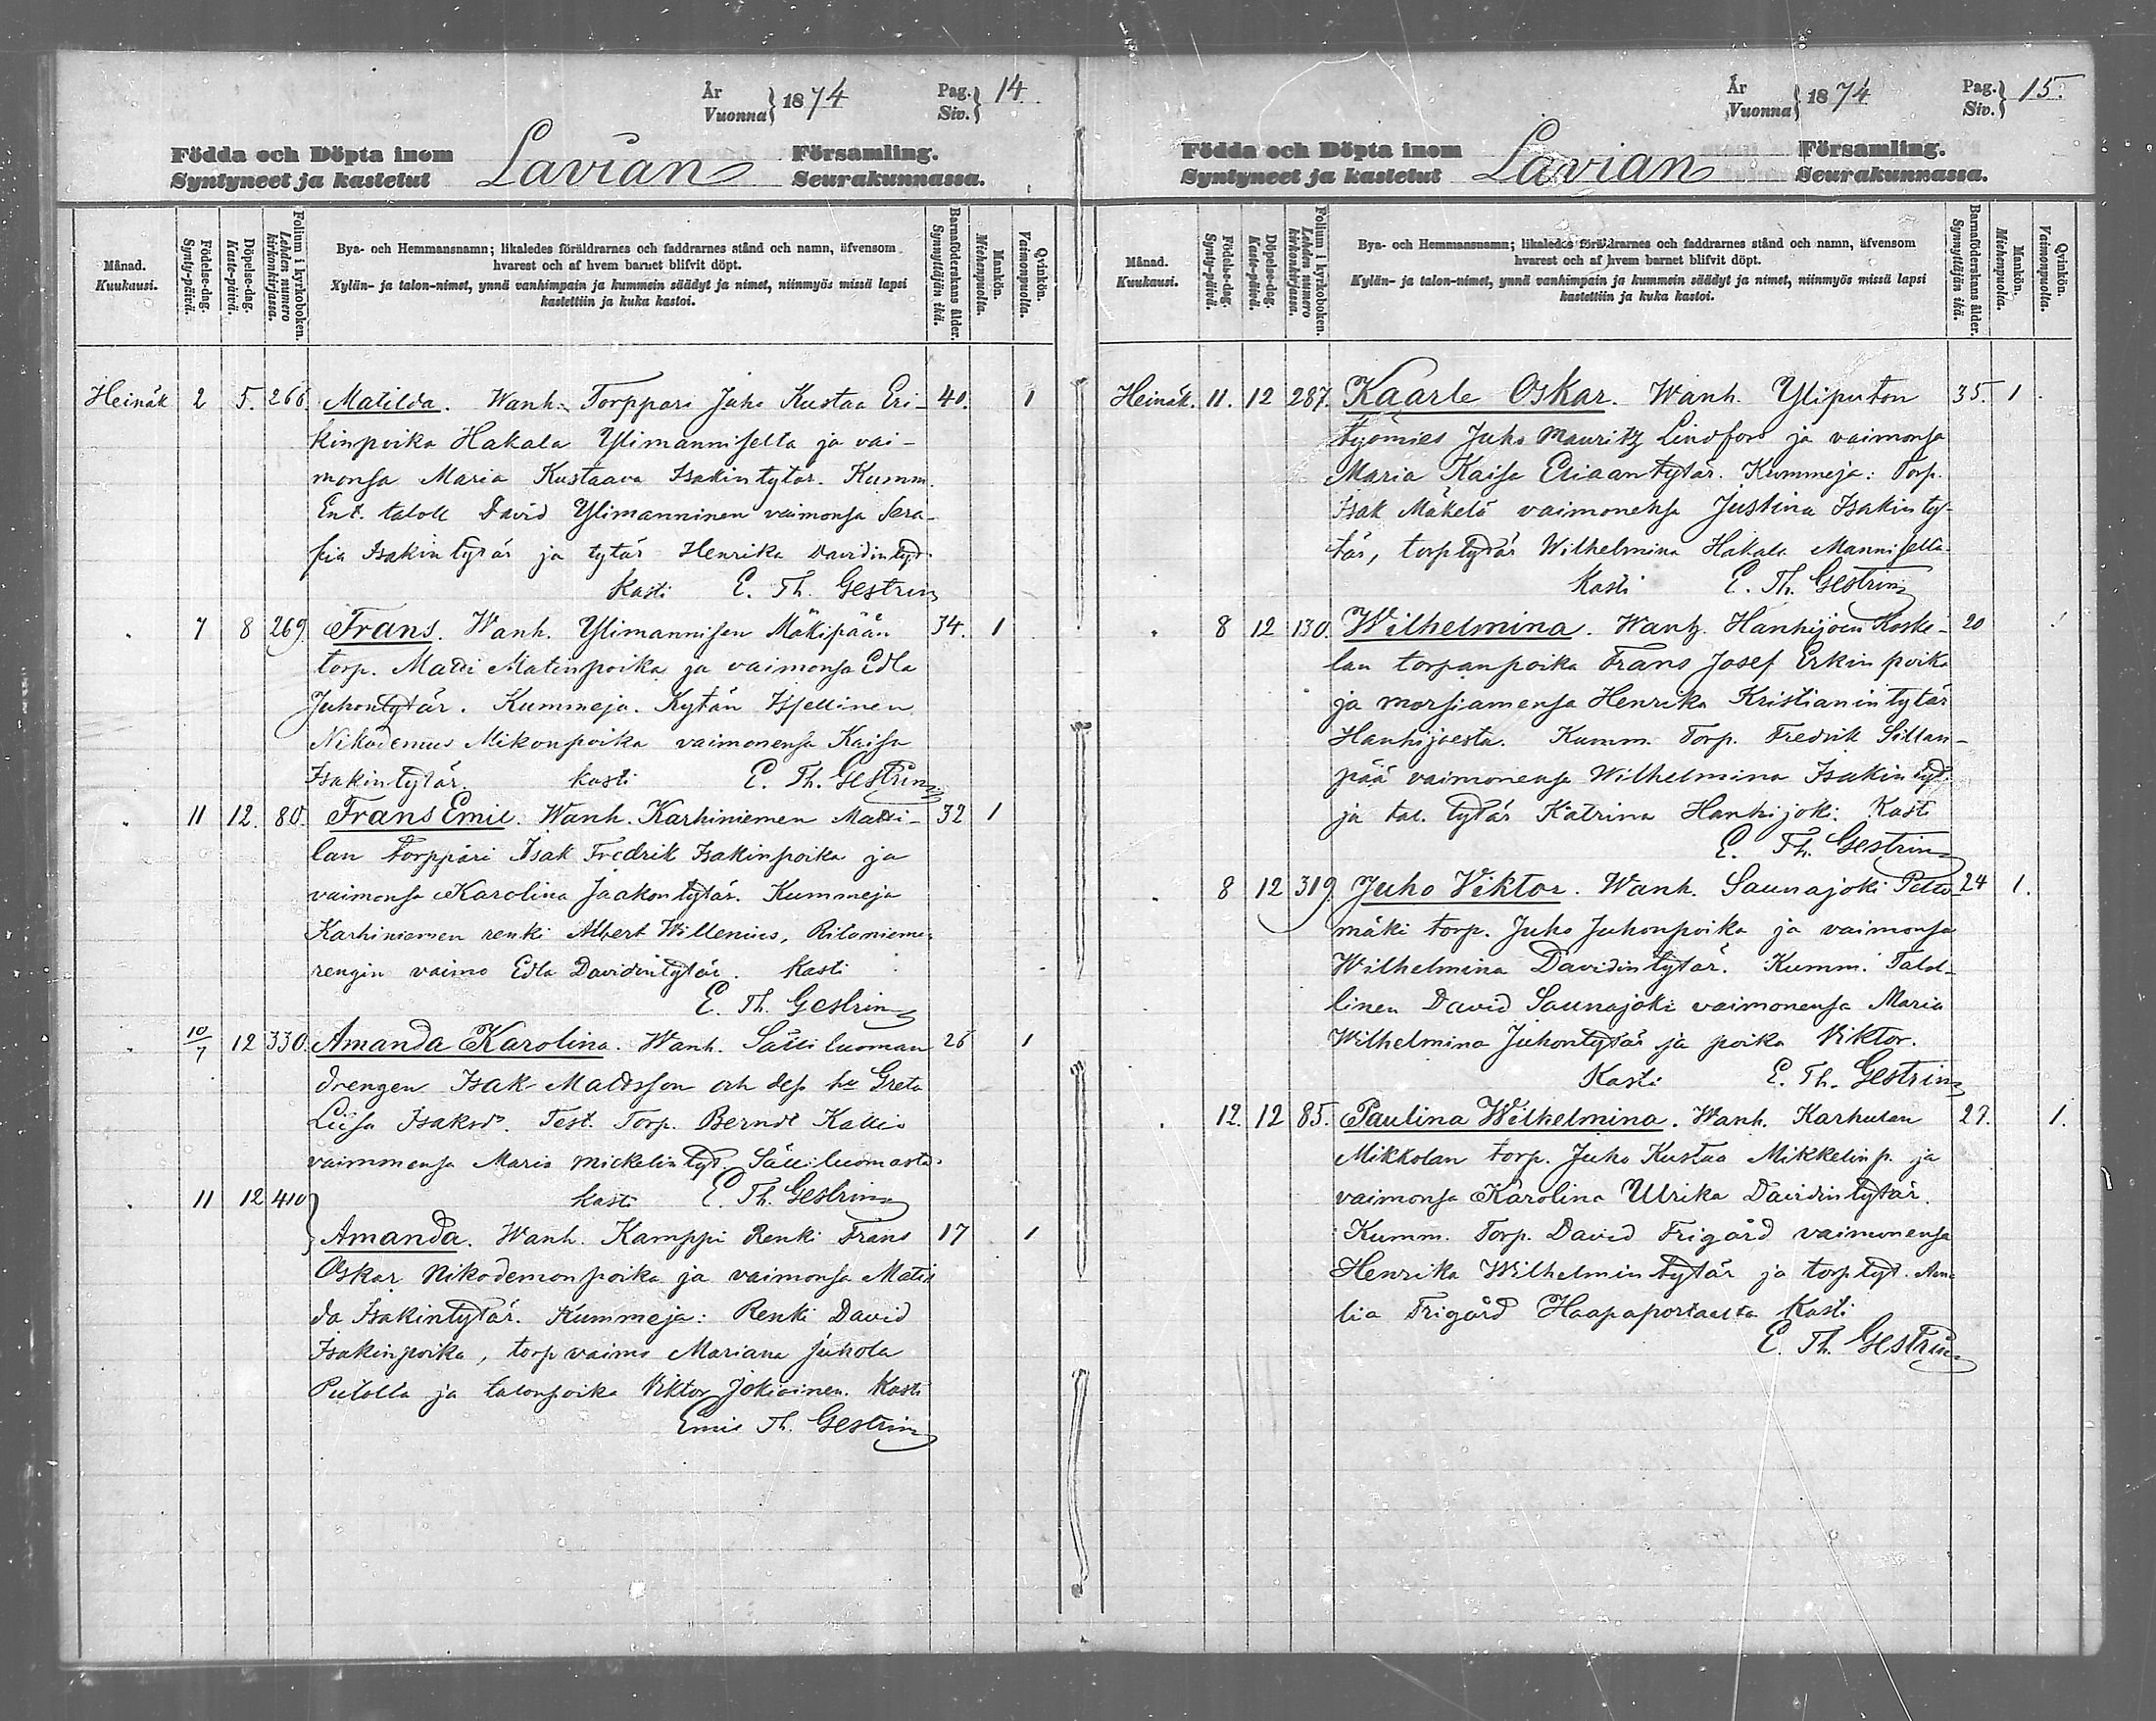 År
Vuonna } 1874
Pag.
Siv. } 14.
Födda och Döpta inom
Syntyneet ja kastetut
Lavian
Församling.
Seurakunnassa.
Månad.
Kuukausi.
Födelse-dag.
Synty-päivä.
Döpelse-dag.
Kaste-päivä.
Folium i kyrkoboken.
Lehden numero
kirkonkirjassa.
Bya- och Hemmansnamn; likaledes föräldrarnes och faddrarnes stånd och namn, äfvensom
hvarest och af hvem barnet blifvit döpt.
Kylän- ja talon-nimet, ynnä vanhimpain ja kummein säädyt ja nimet, niinmyös missä lapsi
kastettiin ja kuka kastoi.
Barnaföderskans ålder.
Synnyttäjän ikä.
Mankön.
Miehenpuolta.
Qvinkön.
Vaimonpuolta.
Heinäk 2 5. 266. Matilda. Wanh. Torppari Juho Kustaa Eri- 40. 1
kinpoika Hakala Ylimanniselta ja vai-
monsa Maria Kustaava Isakintytär. Kumm.
Ent. taloll David Ylimanninen vaimonsa Sera-
fia Isakintytär ja tytär Henrika Davidintyt.
Kasti E. Th. Gestrin
" 7 8 269. Frans. Wanh. Ylimannisen Mäkipään 34. 1
torp. Matti Matinpoika ja vaimonsa Edla
Juhontytär. Kummeja. Kytän
Nikodemus Mikonpoika vaimonensa Kaisa
Isakintytär. kasti E. Th. Gestrin
" 11 12. 80. Frans Emil. Wanh. Karhiniemen Matti- 32 1
lan torppari Isak Fredrik Isakinpoika ja
vaimonsa Karolina Jaakontytär. Kummeja
Karhiniemen renki Albert Willenius, Ritaniemen
rengin vaimo Edla Davidintytär. Kasti
E. Th. Gestrin
" 10/7 12 330. Amanda Karolina. Wanh. Sätti luoman 26 1
drengen Isak Mattsson och dess hu Greta
Liisa Isaksdr. Test. Torp. Berndt Kallio
vaimonensa Maria Mickelintyt. luomasta.
" 11 12 410 kasti E. Th. Gestrin
Amanda. Wanh. Kamppi Renki Frans 17 1
Oskar Nikodemonpoika ja vaimonsa Matil
da Isakintytär. Kummeja: Renki David
Isakinpoika, torp vaimo Mariana Juhola
ja talonpoika Viktor Jokioinen. Kasti
Emil Th. Gestrin
År
Vuonna } 1874
Pag.
Siv. } 15.
Födda och Döpta inom
Syntyneet ja kastetut
Lavian
Församling.
Seurakunnassa.
Månad.
Kuukausi.
Födelse-dag.
Synty-päivä.
Döpelse-dag.
Kaste-päivä.
Folium i kyrkoboken.
Lehden numero
kirkonkirjassa.
Bya- och Hemmansnamn; likaledes föräldrarnes och faddrarnes stånd och namn, äfvensom
hvarest och af hvem barnet blifvit döpt.
Kylän- ja talon-nimet, ynnä vanhimpain ja kummein säädyt ja nimet, niinmyös missä lapsi
kastettiin ja kuka kastoi.
Barnaföderskans ålder.
Synnyttäjän ikä.
Mankön.
Miehenpuolta.
Qvinkön.
Vaimonpuolta.
Heinäk. 11. 12 287. Kaarle Oskar. Wanh. Yliputon 35. 1
työmies Juho Mauritz Lindfors ja vaimonsa
Maria Kaisa Eliaantytär. Kummeja: Torp.
Isak Mäkelä vaimonensa Justina Isakinty-
tär, torptytär Wilhelmina Hakala Manniselta
Kasti E. Th. Gestrin
" 8 12 130. Wilhelmina. Wanh. Hanhijoen Koske- 20 1
lan torpanpoika Frans Josef Erkinpoika
ja morsiamensa Henrika Kristianintytär
Hanhijoesta. Kumm. Torp. Fredrik Sillan-
pää vaimonensa Wilhelmina Isakintyt.
ja tal. tytär Katrina Hanhijoki. Kasti
E. Th. Gestrin
" 8 12 319. Juho Viktor. Wanh. Saunajoki Petto- 24 1.
mäki torp. Juho Juhonpoika ja vaimonsa
Wilhelmina Davidintytär. Kumm. Talol-
linen David Saunajoki vaimonensa Maria
Wilhelmina Juhontytär ja poika Viktor.
Kasti E. Th. Gestrin
" 12. 12 85. Paulina Wilhelmina. Wanh. Karhulan 27. 1.
Mikkolan torp. Juho Kustaa Mikkelinp. ja
vaimonsa Karolina Ulrika Davidintytär.
Kumm. Torp. David Frigård vaimonensa
Henrika Wilhelmintytär ja torptyt. Ama
lia Frigård Haapaportaalta Kasti
E. Th. Gestrin